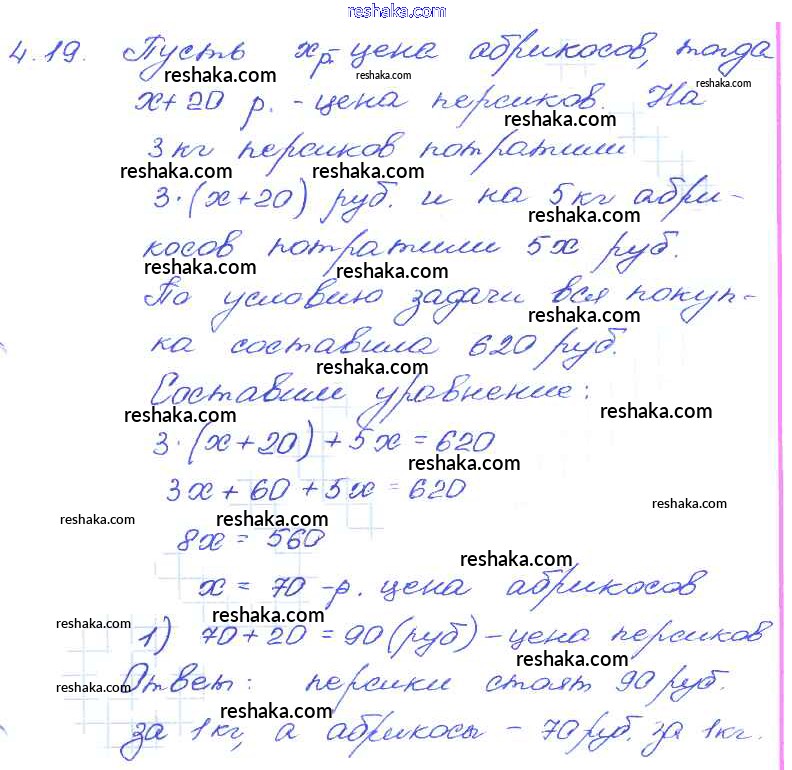 reshaka.com
4.19. Пусть x р.- цена абрикосов, тогда
reshaka.com reshaka.com reshaka.com
x+20 р. - цена персиков. На
reshaka.com
3кг персиков потратили
reshaka.com reshaka.com
3·(x+20) руб. и на 5кг абри-
reshaka.com
косов потратили 5x руб.
reshaka.com reshaka.com
По условию задачи вся покуп-
reshaka.com
ка составила 620 руб.
reshaka.com
Составим уравнение:
reshaka.com reshaka.com
3·(x+20)+5x=620
reshaka.com
3x+60+5x=620
reshaka.com reshaka.com reshaka.com
8x = 560
reshaka.com
x = 70 -р. цена абрикосов
reshaka.com reshaka.com
1) 70+20=90(руб)-цена персиков
reshaka.com
Ответ: персики стоят 90 руб.
reshaka.com reshaka.com
за 1кг, а абрикосы - 70 руб. за 1кг.